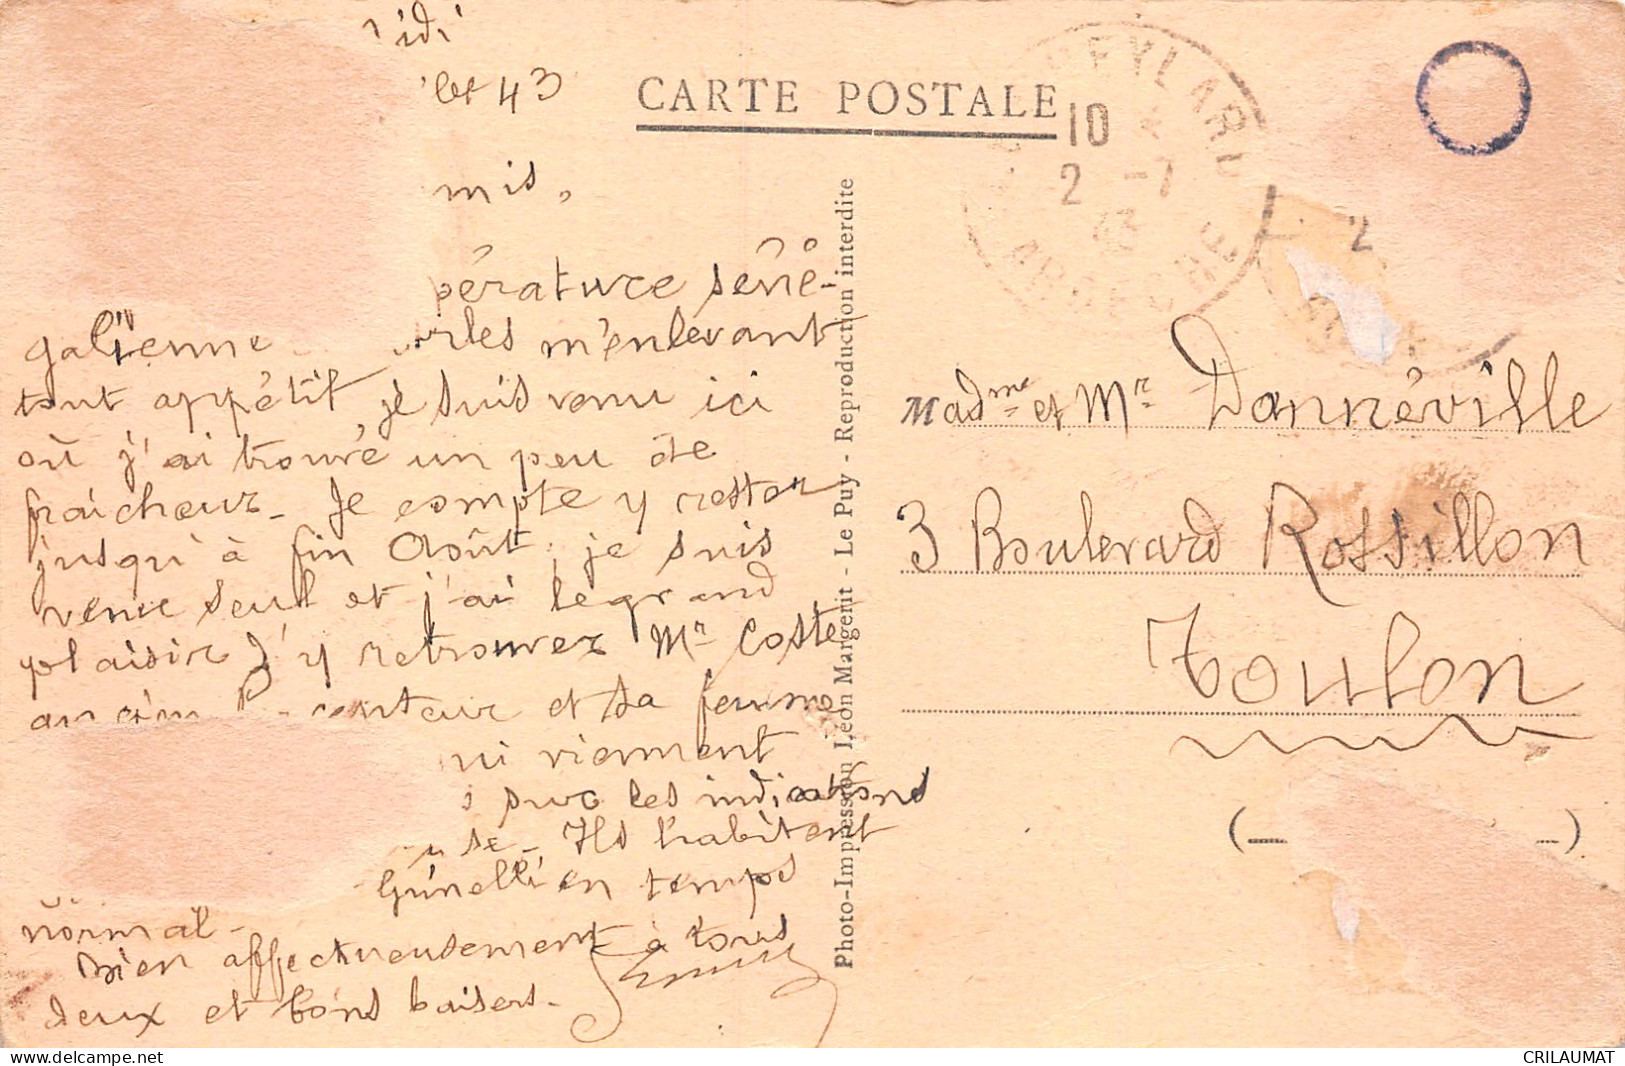 idi
let 43
mis,
pérature séné-
galienne rles m'enlevant
tout appétit je suis venu ici
où j'ai trouvé un peu de
fraicheur - Je compte y rester
jusqu'à fin Août, je suis
venu seul et j'ai le grand
plaisir d'y retrouver Mr Coste
ancien et sa femme
ui viennent
s sur les indications
se - Ils habitent
en temps
normal -
Bien affectueusement à tous
deux et bons baisers -
CARTE POSTALE
EYLARD
10
2 -7
43
ARDECHE
2
Photo-Impression Léon Margerit - Le Puy - Reproduction interdite
Madme et Mr Dannéville
3 Boulevard Rossillon
Toulon
( )
delcampe.net
CRILAUMAT